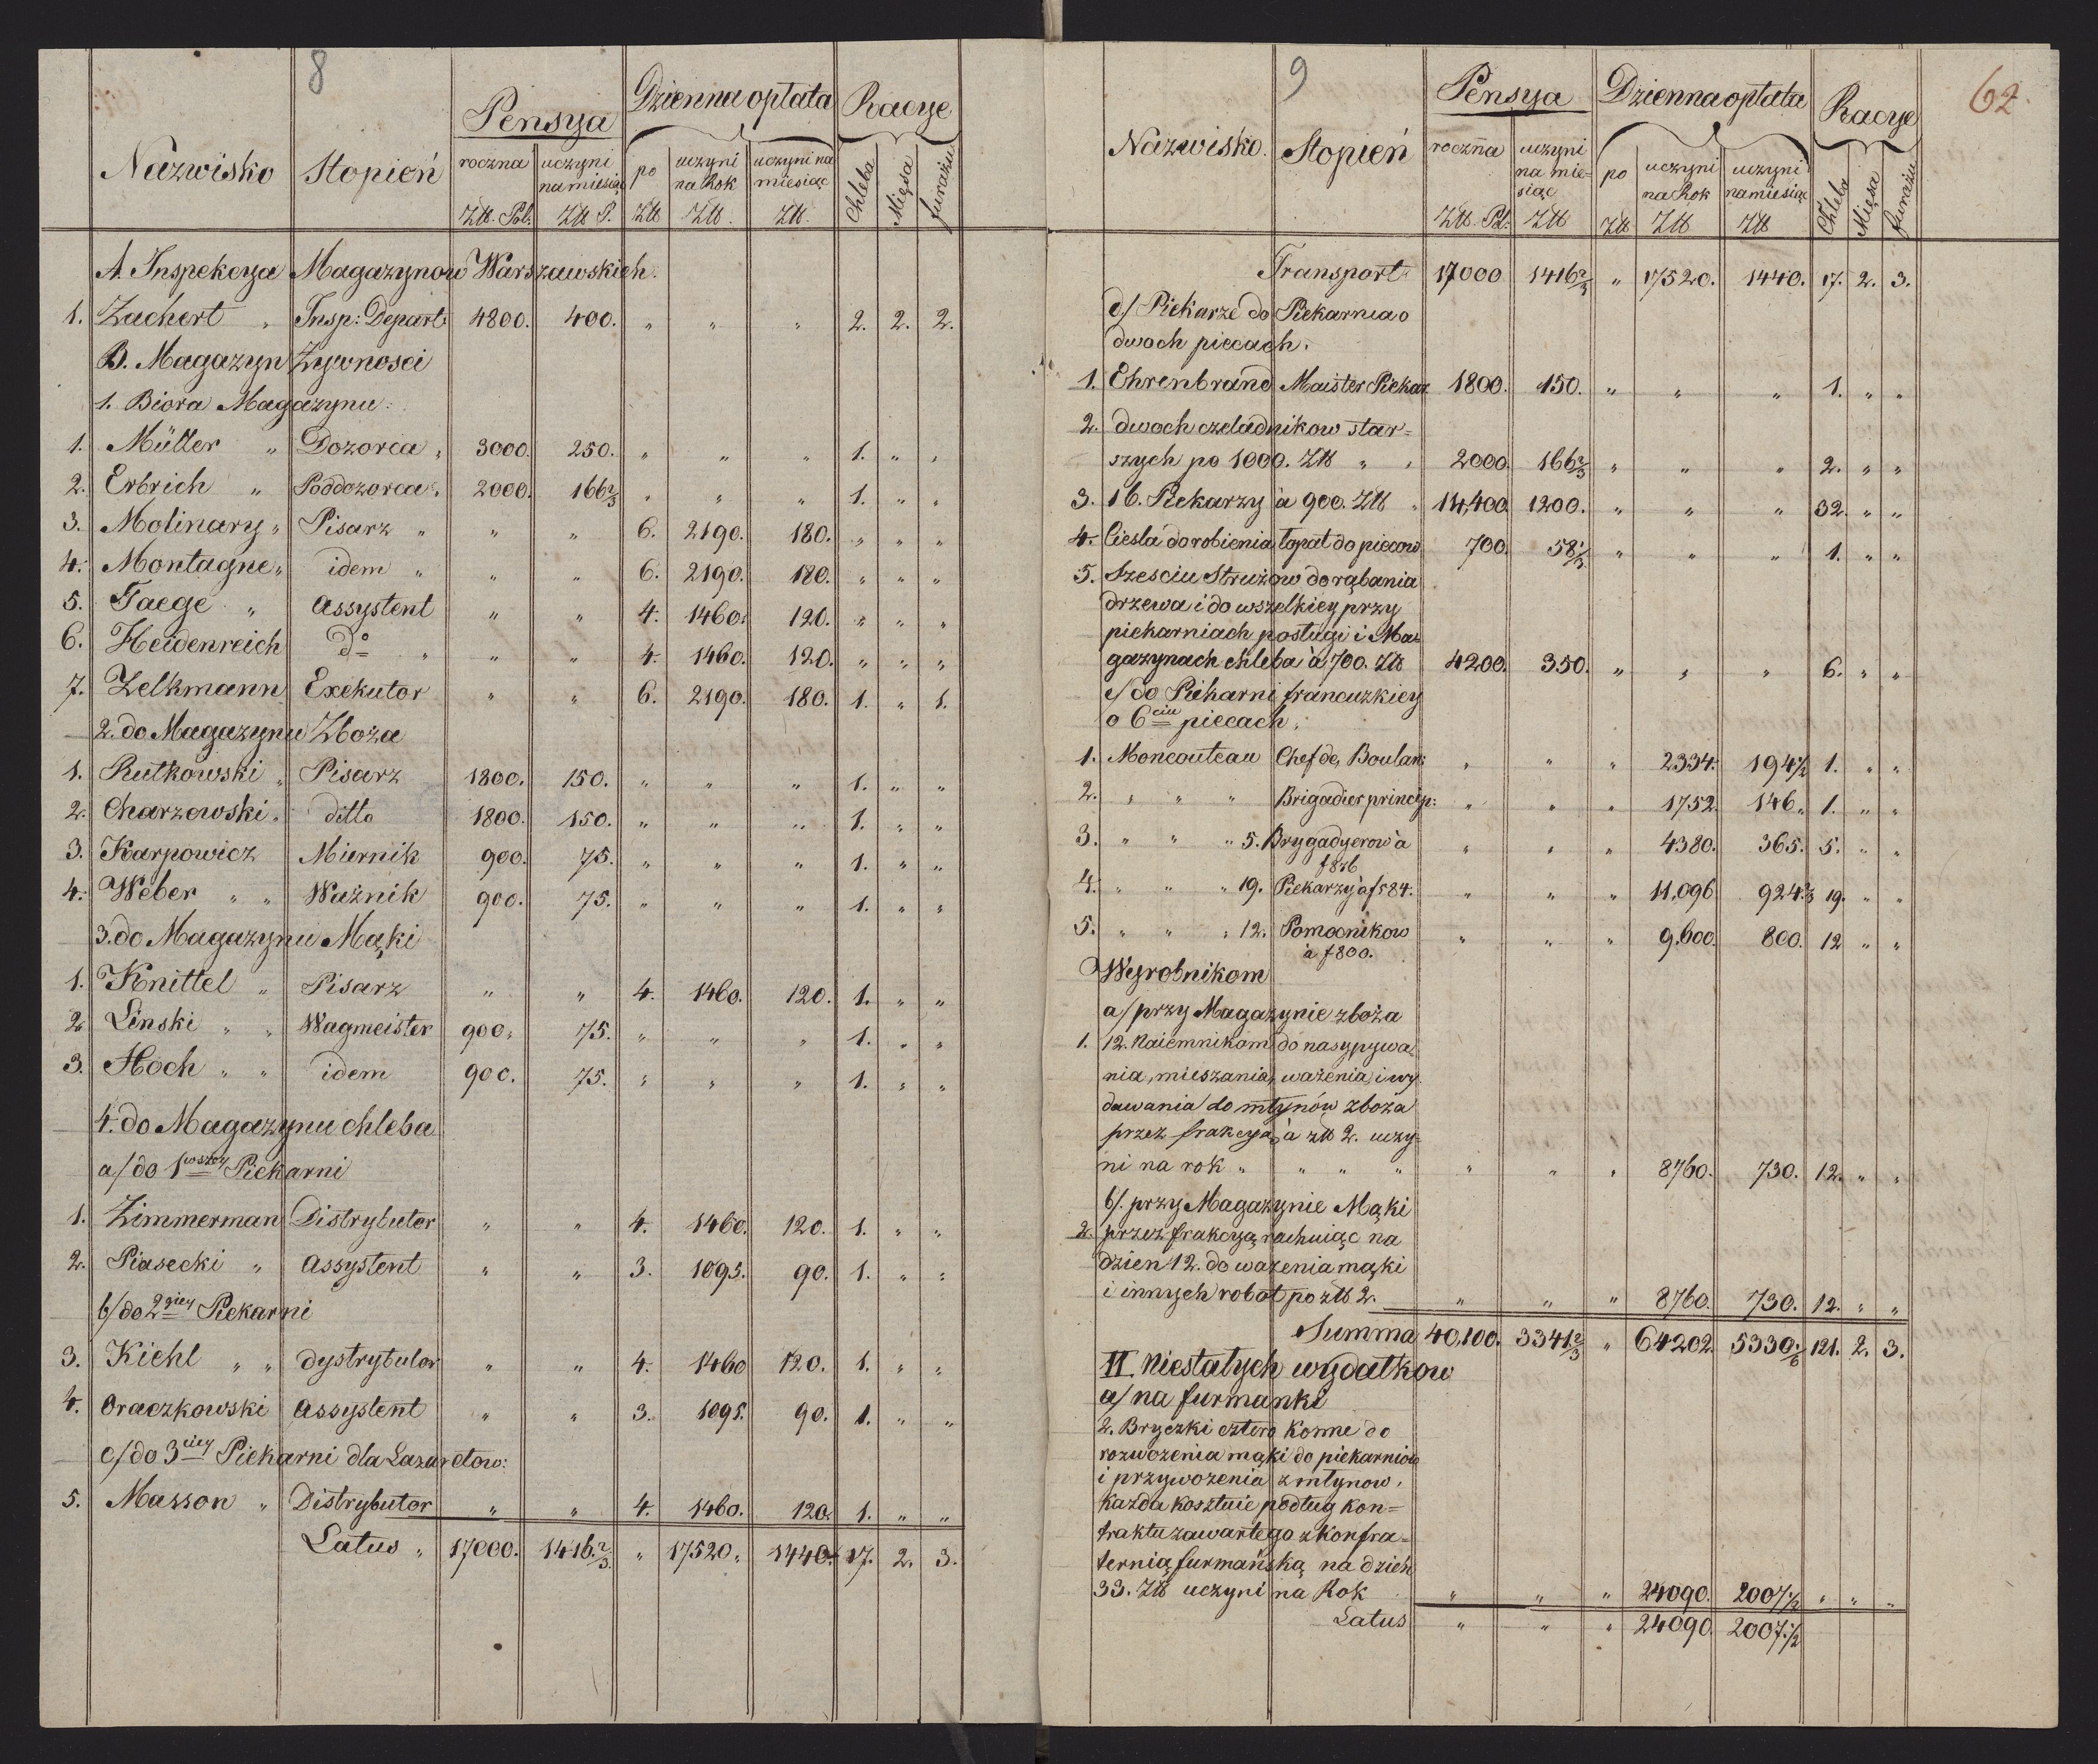 8
Nazwisko Stopień Pensya Dzienna opłata Racye
roczna uczyni na miesiąc po uczyni na Rok uczyni na miesiąc Chleba Mięsa furażu
Złł. Pol. Złł P. Złł Złł. Złł.
A. Inspekcya Magazynow Warszawskich.
1. Zachert " Insp: Depart: 4800. 400. " " " 2. 2. 2.
B. Magazyn Zywnosci
1. Biora Magazynu:
1. Müller " Dozorca " 3000. 250. " " " 1. " "
2. Erbrich " Poddozorca " 2000. 166 2/3 " " " 1. " "
3. Molinary " Pisarz " " " 6. 2190. 180. " " "
4. Montagne " idem " " " 6. 2190. 180. " " "
5. Taege " Assystent " " 4. 1460. 120. " " "
6. Heidenreich do " " " 4. 1460. 120. " " "
7. Zelkmann Exekutor " " 6. 2190. 180. 1. " 1.
2. do Magazynu Zboża
1. Rutkowski " Pisarz 1800. 150. " " " 1. " "
2. Charzewski " ditto 1800. 150. " " " 1. " "
3. Karpowicz Miernik 900. 75. " " " 1. " "
4. Weber " " Ważnik 900. 75. " " " 1. " "
3. do Magazynu Mąki
1. Knittel " Pisarz " " 4. 1460. 120. 1. " "
2. Linski " " Wagmeister 900. 75. " " " 1. " "
3. Hoch " " idem 900. 75. " " " 1. " "
4. do Magazynu chleba
a/ do 1wszey Piekarni
1. Zimmerman Distrybutor " " 4. 1460. 120. 1. " "
2. Piasecki " Assystent " " 3. 1095. 90. 1. " "
b/ do 2giey Piekarni
3. Kiehl " " dystrybutor " " 4. 1460 120. 1. " "
4. Oraczkowski Assystent " " 3. 1095. 90. 1. " "
c/ do 3ciey Piekarni dla Lazaretow:
5. Masson " Distrybutor " " 4. 1460. 120. 1. " "
Latus " 17000. 1416. 2/3 " 17520. 1440. 17. 2. 3.
9
62.
Nazwisko. Stopień Pensya Dzienna opłata Racye
roczna uczyni na miesiąc po uczyni na Rok uczyni na miesiąc Chleba Mięsa furażu
Złł. Pol: Złł Złł Złł Złł
Transport 17000 1416 2/3 " 17520. 1440. 17. 2. 3.
d/ Piekarze do Piekarnia o
dwoch piecach.
1. Ehrenbrand Maister Piekar 1800. 150. " " " 1. " "
2. dwoch czeladnikow star=
szych po 1000. Złł " " 2000. 166 2/3 " " " 2. " "
3. 16. Piekarzy à 900. Złł " 14,400. 1200. " " " 32. " "
4. Ciesla do robienia łopat do piecow 700. 58 1/3 " " " 1. " "
5. Szesciu Strużow do rąbania
drzewa i do wszelkiey przy
piekarniach posługi i Ma=
gazynach chleba à 700. Złł 4200. 350. " " " 6. " "
e/ do Piekarni francuzkiey
o 6ciu piecach.
1. Moncouteau Chef de, Boulan: " " " 2334. 194 1/2 1. " "
2. " " " Brigadier princip: " " " 1752. 146. 1. " "
3. " " " 5. Brygadyerow à " " " 4380. 365. 5. " "
f 876
4. " " " 19. Piekarzy à f 584. " " " 11,096 924. 2/3 19. " "
5. " " " 12. Pomocnikow " " " 9,600. 800. 12 " "
à f 800.
Wyrobnikom
a/ przy Magazynie zboża
1. 12. Naiemnikom do nasypywa=
nia, mieszania, ważenia i wy=
dawania do młynów zboża
przez frakcyą, à złł 2. uczy=
ni na rok " " " " " " " 8760. 730. 12. " "
b/. przy Magazynie Mąki
2. przez frakcyą rachuiąc na
dzien 12. do ważenia mąki
i innych robot po złł 2. " " " 8760. 730. 12. " "
Summa 40,100. 3341 2/3 " 64202. 5330. 1/6 121. 2. 3.
II Niestałych wydatkow
a/ na furmanki
2. Bryczki cztero konne do
rozwożenia mąki do piekarniow
i przywożenia z młynow,
każda kosztuie podług kon=
traktu zawartego z konfra=
ternią furmańską na dzień
33. Złł uczyni na Rok " " " 24090. 2007. 1/2 " " "
Latus " " " 24090. 2007. 1/2